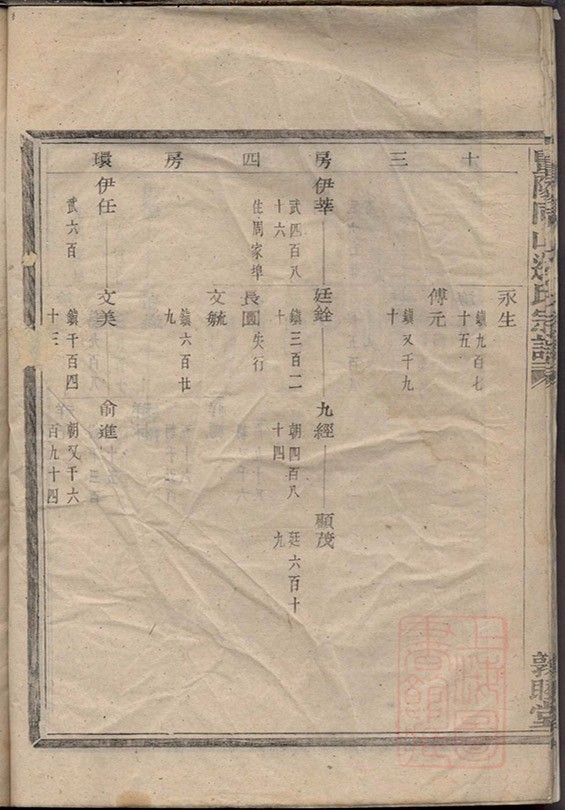 十三四房環
永生
鎮九百七
十五
傳元
鎮又千九
十
房伊莘
武四百八
十六
廷銓
鎮三百一
十
九經
朝四百八
十四
顯茂
廷六百十
九
住周家埠
長園失行
文毓
鎮六百廿
九
伊任
武六百
文美
鎮千百四
十三
俞進
朝又千六
百九十四
山氏宗譜
敦睦堂